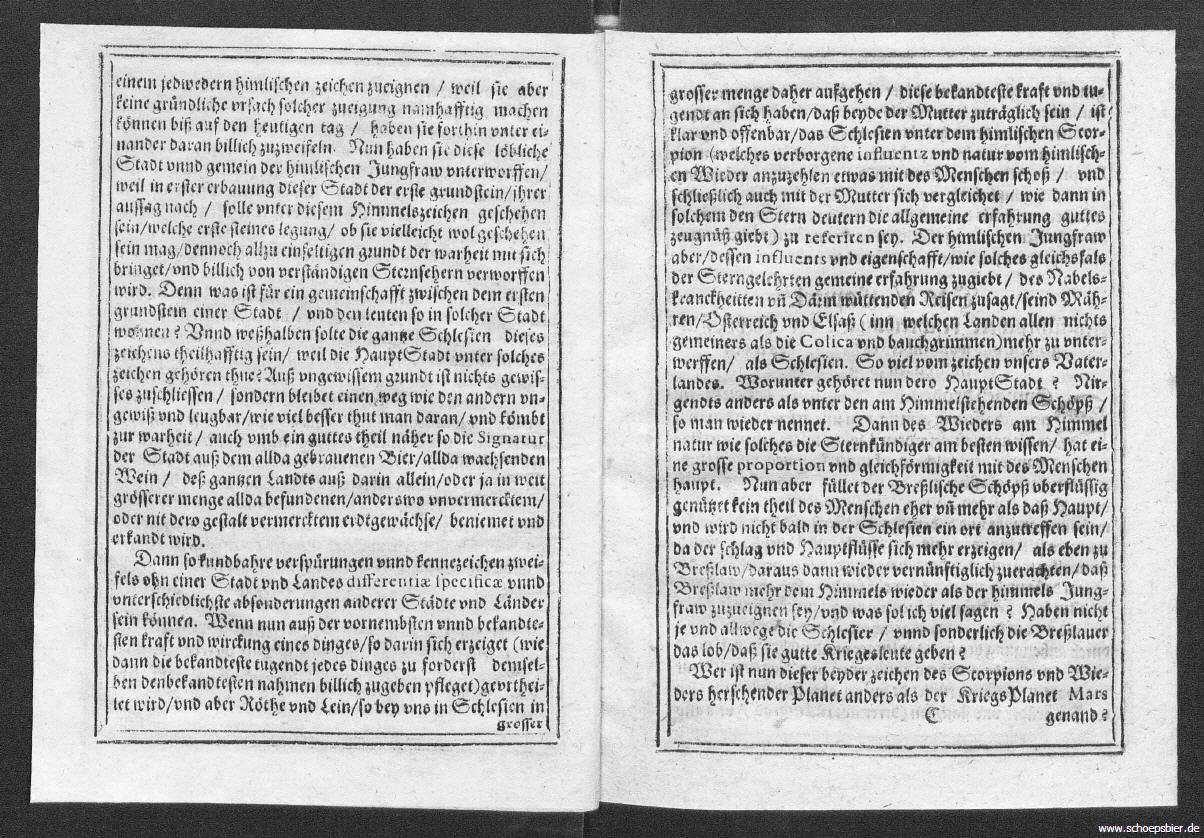 einem jedwedern himlischen zeichen zueignen / weil sie aber
keine gründliche vrsach solcher zueigung namhafftig machen
können biß auf den heutigen tag / haben sie forthin vnter ei-
nander daran billich zuzweifeln. Nun haben sie diese löbliche
Stadt vnnd gemein der himlischen Jungfraw vnterworffen/
weil in erster erbauung dieser Stadt der erste grundstein/jhrer
aussag nach / solle vnter diesem Himmelszeichen geschehen
sein/welche erste steines legung/ ob sie vielleicht wol geschehen
sein mag/dennoch allzu einfeltigen grundt der warheit mit sich
bringet/vnd billich von verständigen Sternsehern verworffen
wird. Denn was ist für ein gemeinschafft zwischen dem ersten
grundstein einer Stadt / vnd den leuten so in solcher Stadt
wohnen? Vnnd weßhalben solte die gantze Schlesien dieses
zeichens theilhafftig sein/ weil die HauptStadt vnter solches
zeichen gehören thue? Auß vngewissem grundt ist nichts gewis-
ses zuschliessen/ sondern bleibet einen weg wie den andern vn-
gewiß vnd leugbar/wie viel besser thut man daran/vnd kömbt
zur warheit/ auch vmb ein guttes theil näher so die Signatur
der Stadt auß dem allda gebrauenen Bier/allda wachsenden
Wein / deß gantzen Landts auß darin allein/oder ja in weit
grösserer menge allda befundenen/anderswo vnvermercktem/
oder nit dero gestalt vermercktem erdtgewächse/ beniemet vnd
erkandt wird.
Dann so kundbahre verspürungen vnnd kennezeichen zwei-
fels ohn einer Stadt vnd Landes differentiæ specificæ vnnd
vnterschiedlichste absonderungen anderer Städte vnd Länder
sein können. Wenn nun auß der vornembsten vnnd bekandte-
sten kraft vnd wirckung eines dinges/so darin sich erzeiget (wie
dann die bekandteste tugendt jedes dinges zu forderst demsel-
ben denbekandtesten nahmen billich zugeben pfleget)gevrthei-
let wird/vnd aber Röthe vnd Lein/so bey vns in Schlesien in
grosser
grosser menge daher aufgehen / diese bekandteste kraft vnd tu-
gendt an sich haben/daß beyde der Mutter zuträglich sein / ist
klar vnd offenbar/das Schlesien vnter dem himlischen Scor-
pion (welches verborgene influentz vnd natur vom himlisch-
en Wieder anzuzehlen etwas mit des Menschen schoß / vnd
schließlich auch mit der Mutter sich vergleichet / wie dann in
solchem den Stern deutern die allgemeine erfahrung guttes
zeugnüß giebt) zu referiren sey. Der himlischen Jungfraw
aber/dessen influents vnd eigenschafft/wie solches gleichsfals
der Sterngelehrten gemeine erfahrung zugiebt / des Nabels-
kranckheitten vñ Darm wüttenden Reisen zusagt/seind Mäh-
ren/Osterreich vnd Elsaß ( inn welchen Landen allen nichts
gemeiners als die Colica vnd bauchgrimmen)mehr zu vnter-
werffen/ als Schlesien. So viel vom zeichen vnsers Vater-
landes. Worunter gehöret nun dero HauptStadt ? Nir-
gendts anders als vnter den am Himmelstehenden Schöpß /
so man wieder nennet. Dann des Wieders am Himmel
natur wie solches die Sternkündiger am besten wissen/ hat ei-
ne grosse proportion vnd gleichförmigkeit mit des Menschen
haupt. Nun aber füllet der Breßlische Schöpß vberflüssig
genützet kein theil des Menschen eher vñ mehr als daß Haupt/
vnd wird nicht bald in der Schlesien ein ort anzutreffen sein/
da der schlag vnd Hauptflüsse sich mehr erzeigen/ als eben zu
Breßlaw/daraus dann wieder vernünftiglich zuerachten/daß
Breßlaw mehr dem Himmels wieder als der himmels Jung-
fraw zuzueignen sey/vnd was sol ich viel sagen ? Haben nicht
je vnd allwege die Schlesier / vnnd sonderlich die Breßlauer
das lob/daß sie gutte Kriegesleute geben?
Wer ist nun dieser beyder zeichen des Scorpions vnd Wie-
ders herschender Planet anders als der KriegsPlanet Mars
C genand?
www.schoepsbier.de